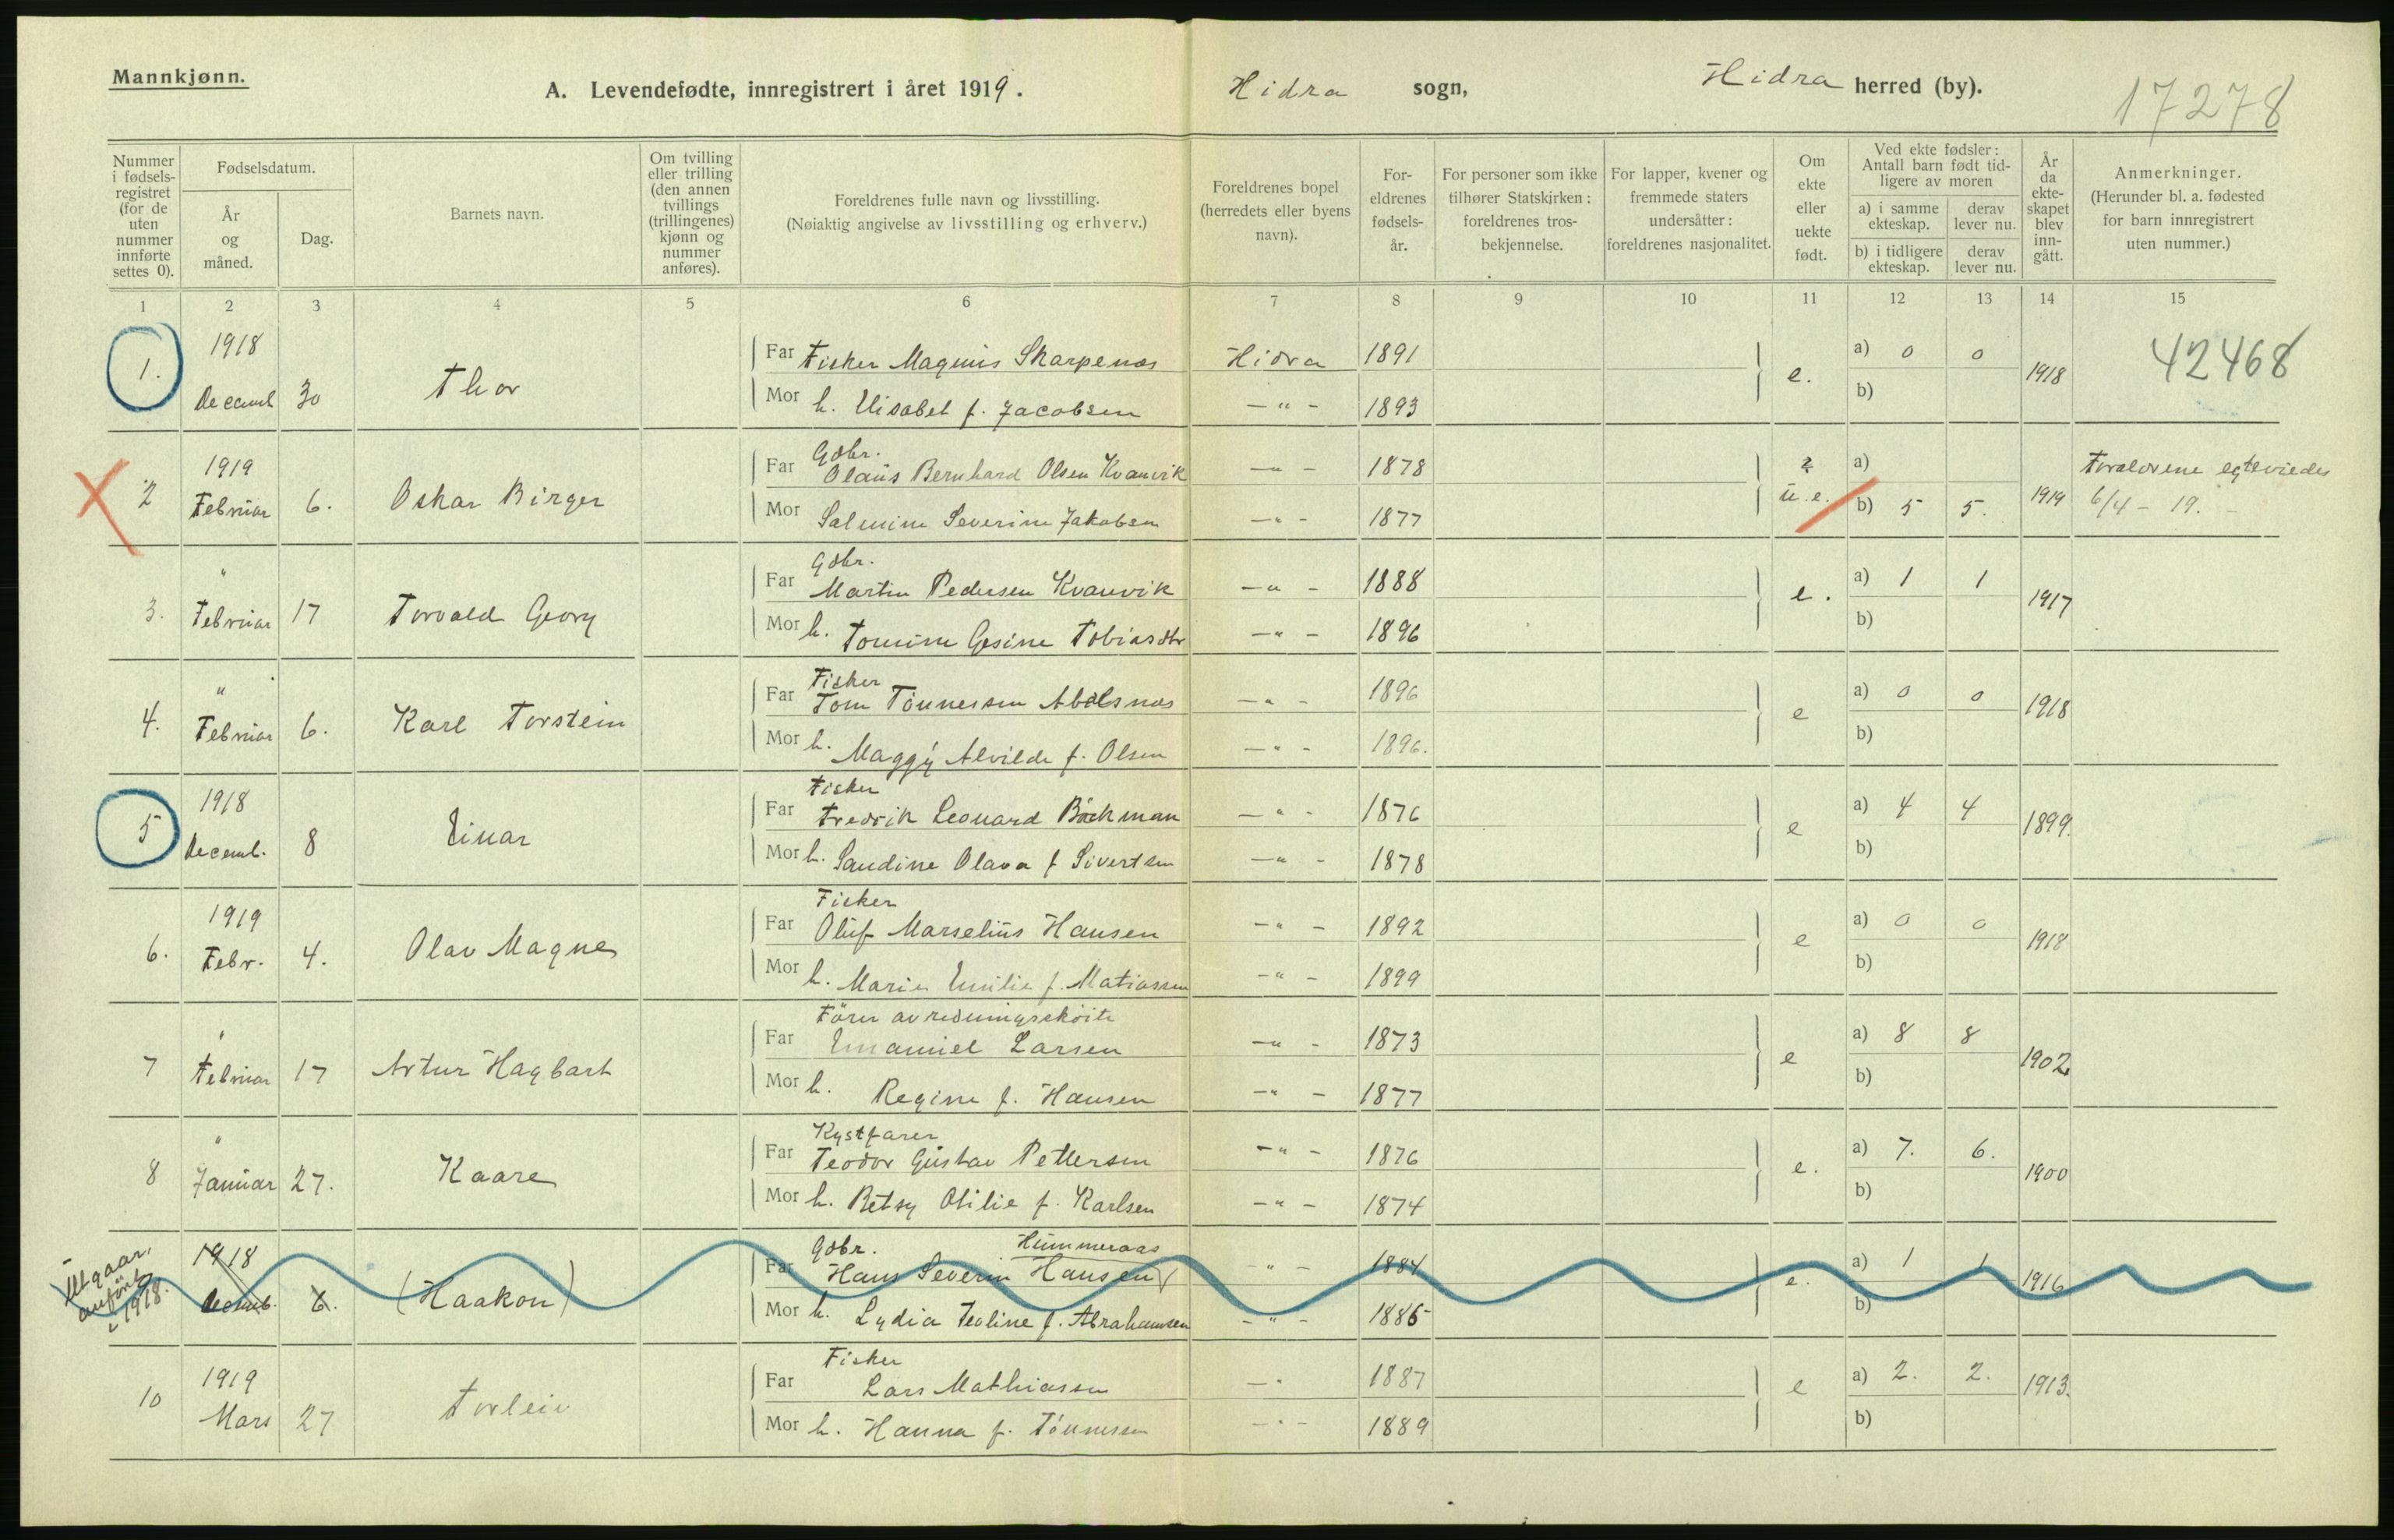 Mannkjønn.
A. Levendefødte, innregistrert i året 1919.
Hidra sogn,
Hidra herred (by).
17278
Nummer i fødsels-registret (for de uten nummer innførte settes 0).
Fødselsdatum.
År og måned.
Dag.
Barnets navn.
Om tvilling eller trilling (den annen tvillings (trillingenes) kjønn og nummer anføres).
Foreldrenes fulle navn og livsstilling.
(Nøiaktig angivelse av livsstilling og erhverv.)
Foreldrenes bopel (herredets eller byens navn).
For-eldrenes fødsels-år.
For personer som ikke tilhører Statskirken: foreldrenes tros-bekjennelse.
For lapper, kvener og fremmede staters undersåtter: foreldrenes nasjonalitet.
Om ekte eller uekte født.
Ved ekte fødsler: Antall barn født tid-ligere av moren
a) i samme ekteskap.
derav lever nu.
b) i tidligere ekteskap.
derav lever nu.
År da ekte-skapet blev inn-gått.
Anmerkninger.
(Herunder bl. a. fødested for barn innregistrert uten nummer.)
1 2 3 4 5 6 7 8 9 10 11 12 13 14 15
1. 1918 Decemb 30 Thor
Far Fisker Magnus Skarpenes Hidra 1891 e. a) 0 0 1918 42468
Mor h. Elisabet f. Jacobsen —"— 1893 b)
2 1919 Februar 6. Oskar Birger
Far Gdbr. Olaus Bernhard Olsen Kvanvik —"— 1878 a) 1919 Foreldrene egteviedes
Mor Salmine Severine Jakobsen —"— 1877 u.e. b) 5 5. 6/4 - 19.
3. " Februar 17 Torvald Georg
Far Gdbr. Martin Pedersen Kvanvik —"— 1888 e. a) 1 1 1917
Mor h. Tomine Gesine Tobiasdtr —"— 1896 b)
4. " Februar 6. Karl Torstein
Far Fisker Tom Tönnessen Abelsnes —"— 1896 e a) 0 0 1918
Mor h. Maggy Alvilde f. Olsen —"— 1896. b)
5 1918 Decemb. 8 Einar
Far Fisker Fredrik Leonard Bäckman —"— 1876 e a) 4 4 1899.
Mor h. Sandine Olava f Sivertsen —"— 1878 b)
6. 1919 Febr. 4. Olav Magne
Far Fisker Oluf Marselius Hansen —"— 1892 e a) 0 0 1918
Mor h. Marie Emilie f. Matiassen —"— 1899 b)
7 " Februar 17 Artur Hagbart
Far Förer av redningsskoite Emanuel Larsen —"— 1873 e a) 8 8 1902
Mor h. Regine f. Hansen —"— 1877 b)
8 " Januar 27. Kaare
Far Kystfarer Teodor Gustav Pettersen —"— 1876 e. a) 7. 6. 1900
Mor h. Betsy Otilie f. Karlsen —"— 1874 b)
Utgaar, anført i 1918.
1918 Decemb. 6. (Haakon)
Far Gdbr. Hans Severin Hansen Hummeraas —"— 1884 e. a) 1 1 1916
Mor h. Lydia Teoline f. Abrahamsen —"— 1885 b)
10 1919 Mars 27 Torleiv
Far Fisker Lars Mathiassen —"— 1887 e a) 2. 2. 1913.
Mor h. Hanna f. Tönnessen —"— 1889 b)